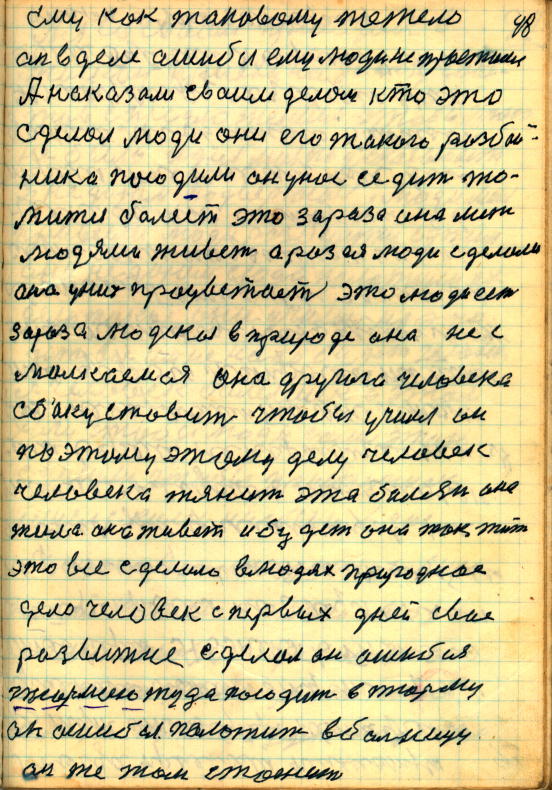 48
ему как таковому тежело
он в деле ошибсы ему люди не простили
А наказали своим делом кто это
сделол люди они его такого розбой-
ника посодили он унос седит то-
мится болеет это зараза она меж
людями живет а роз ея люди сделоли
она у них процветает это людиест
зараза людскоя в природе она не с
молкаемся она другога человека
собаку ставит чтобы учил он
по этому этому делу человек
человека тянит эта болезн она
жила она живет и будет она так жит
это все сделоло влюдях природное
дело человек с первых дней свое
розвитие сделол он ошибся
тюрмою туда посодит в тюрму
он ошибся положит вбольницу
он же там стонет